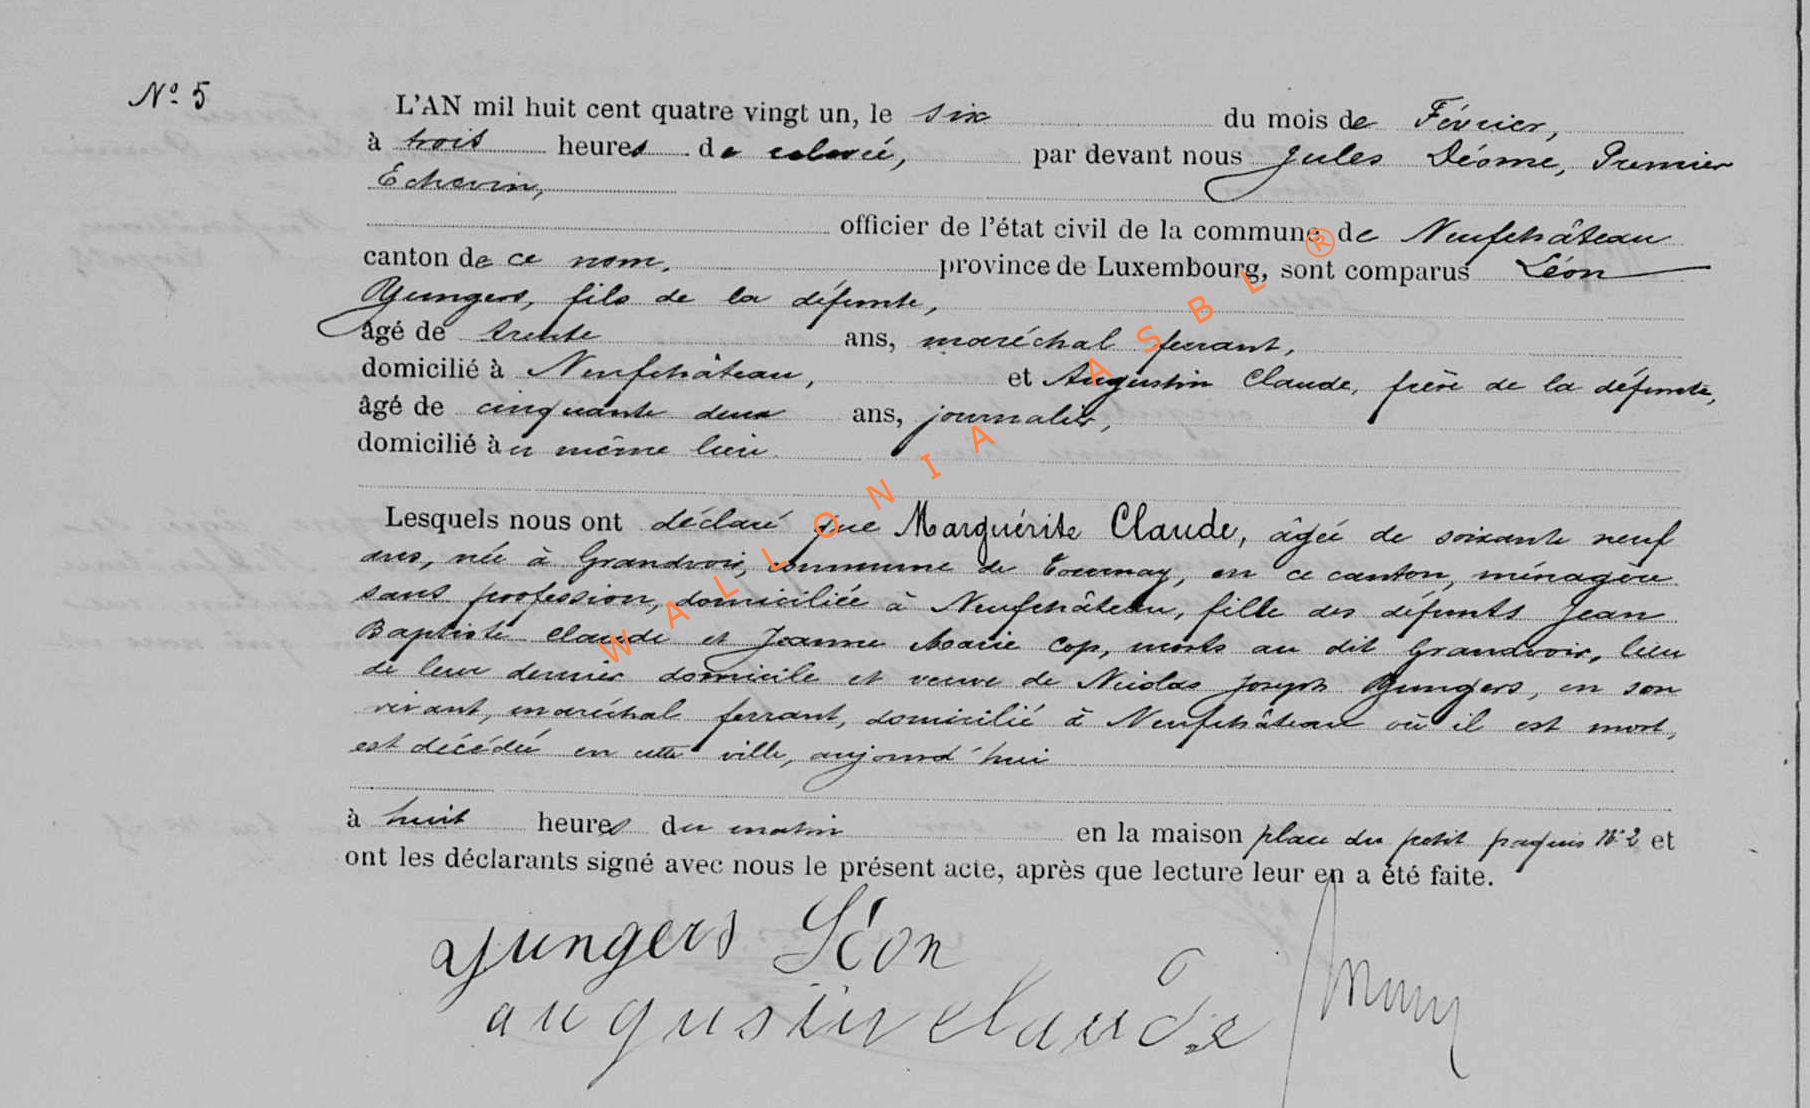 N° 5
L'AN mil huit cent quatre vingt un, le six du mois de Février,
à trois heures de relevée, par devant nous Jules Déome, Premier
Echevin,
officier de l'état civil de la commune de Neufchâteau
canton de ce nom, province de Luxembourg, sont comparus Léon
Yungers, fils de la défunte,
âgé de trente ans, maréchal ferrant,
domicilié à Neufchâteau, et Augustin Claude, frère de la défunte,
âgé de cinquante deux ans, journalier,
domicilié au même lieu.
Lesquels nous ont déclaré que Marguérite Claude, âgée de soixante neuf
ans, née à Grandvoir, commune de Tournay, en ce canton, ménagère
sans profession, domiciliée à Neufchâteau, fille des défunts Jean
Baptiste Claude et Jeanne Marie Cop, morts au dit Grandvoir, lieu
de leur dernier domicile et veuve de Nicolas Joseph Yungers, en son
vivant, maréchal ferrant, domicilié à Neufchâteau où il est mort,
est décédée en cette ville, aujourd'hui
à huit heures du matin en la maison place du petit paquis N° 2 et
ont les déclarants signé avec nous le présent acte, après que lecture leur en a été faite.
Yungers Léon
augustin claude
WALLONIA ASBL ®